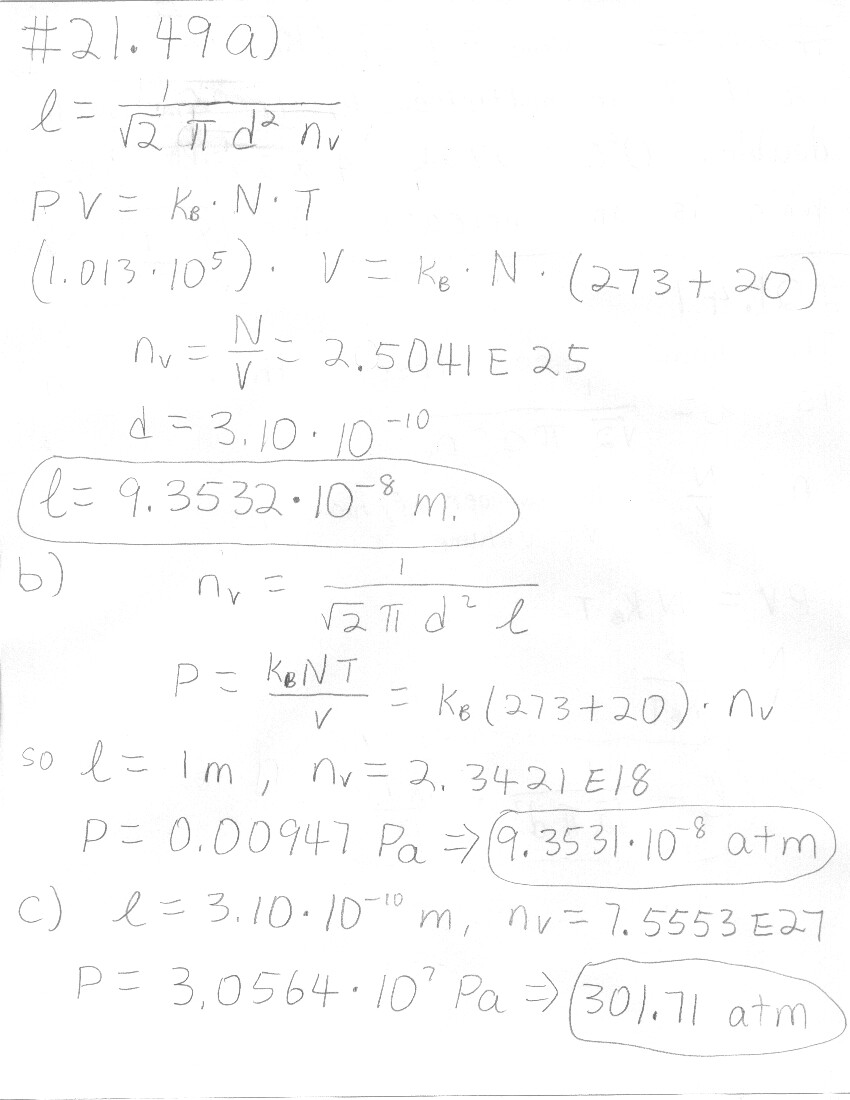 #21.49a)
ℓ = 1/(√2 π d² nᵥ)
PV = k_B · N · T
(1.013·10⁵) · V = k_B · N · (273 + 20)
nᵥ = N/V = 2.5041E25
d = 3.10·10⁻¹⁰
ℓ = 9.3532·10⁻⁸ m.
b) nᵥ = 1/(√2 π d² ℓ)
P = k_B N T/V = k_B (273+20) · nᵥ
so ℓ = 1m, nᵥ = 2.3421E18
P = 0.00947 Pa ⇒ 9.3531·10⁻⁸ atm
c) ℓ = 3.10·10⁻¹⁰ m, nᵥ = 7.5553E27
P = 3.0564·10⁷ Pa ⇒ 301.71 atm